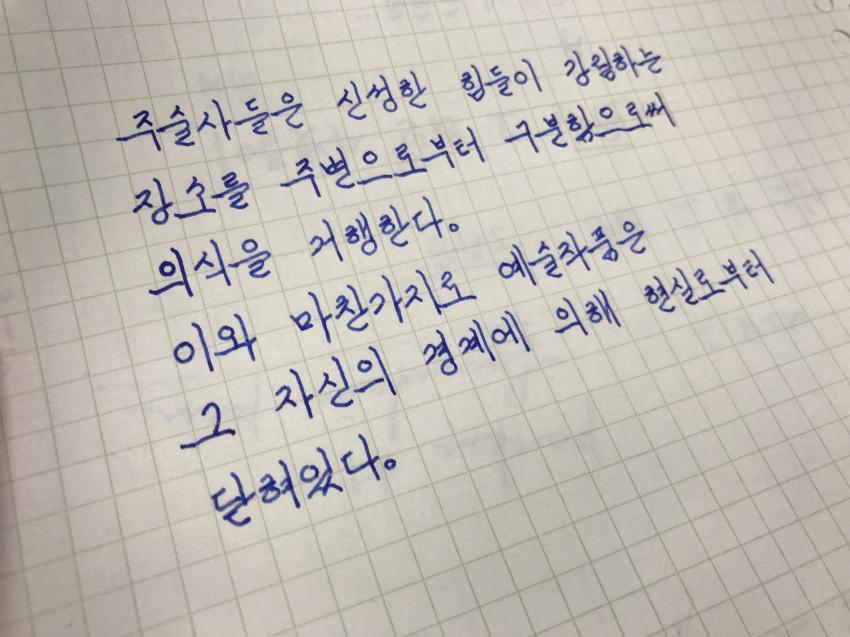 주술사들은 신성한 힘들이 강림하는
장소를 주변으로부터 구분함으로써
의식을 거행한다.
이와 마찬가지로 예술작품은
그 자신의 경계에 의해 현실로부터
닫혀있다.